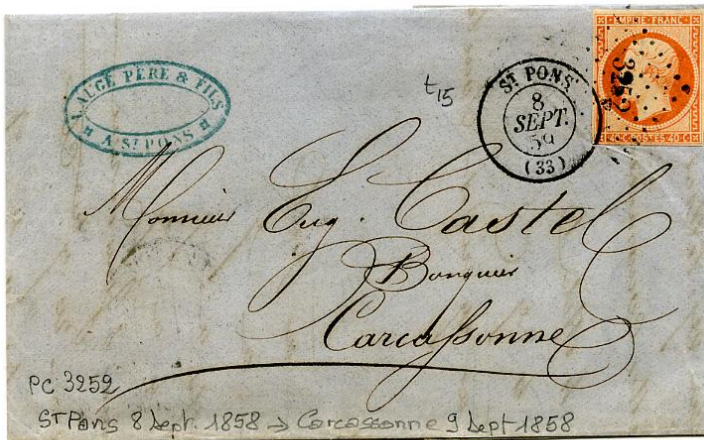 LAUGÉ PÈRE & FILS
A ST PONS
t15
ST PONS
8
SEPT.
(33)
EMPIRE FRANC.
3252
40 C POSTES 40 C
Monsieur Eug. Castel
Banquier
Carcassonne
PC 3252
ST Pons 8 Sept. 1858 → Carcassonne 9 Sept 1858